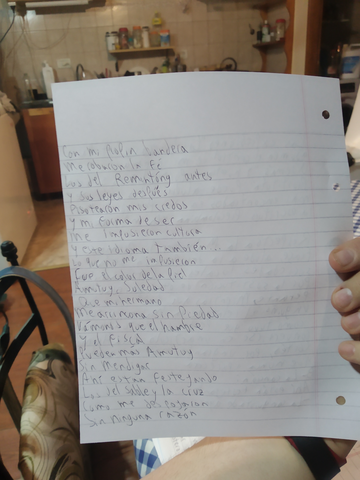 Con mi Pulin bandera
Me robaron la Fe
Los del Remintony antes
Y sus leyes después
Pisotearon mis credos
Y mi Forma de ser
Me impusieron cultura
Y este idioma también
Lo que no me impusieron
Fue el color de la piel
Amutuy, Soledad
Que mi hermano
Me arrincona sin piedad
Vámonos que el hambre
Y el Fiscal
Pueden mas Amutuy
Sin Mendigar
Ahí estan Festejando
Los del Sable y la Cruz
Como me despojaron
Sin ninguna razón